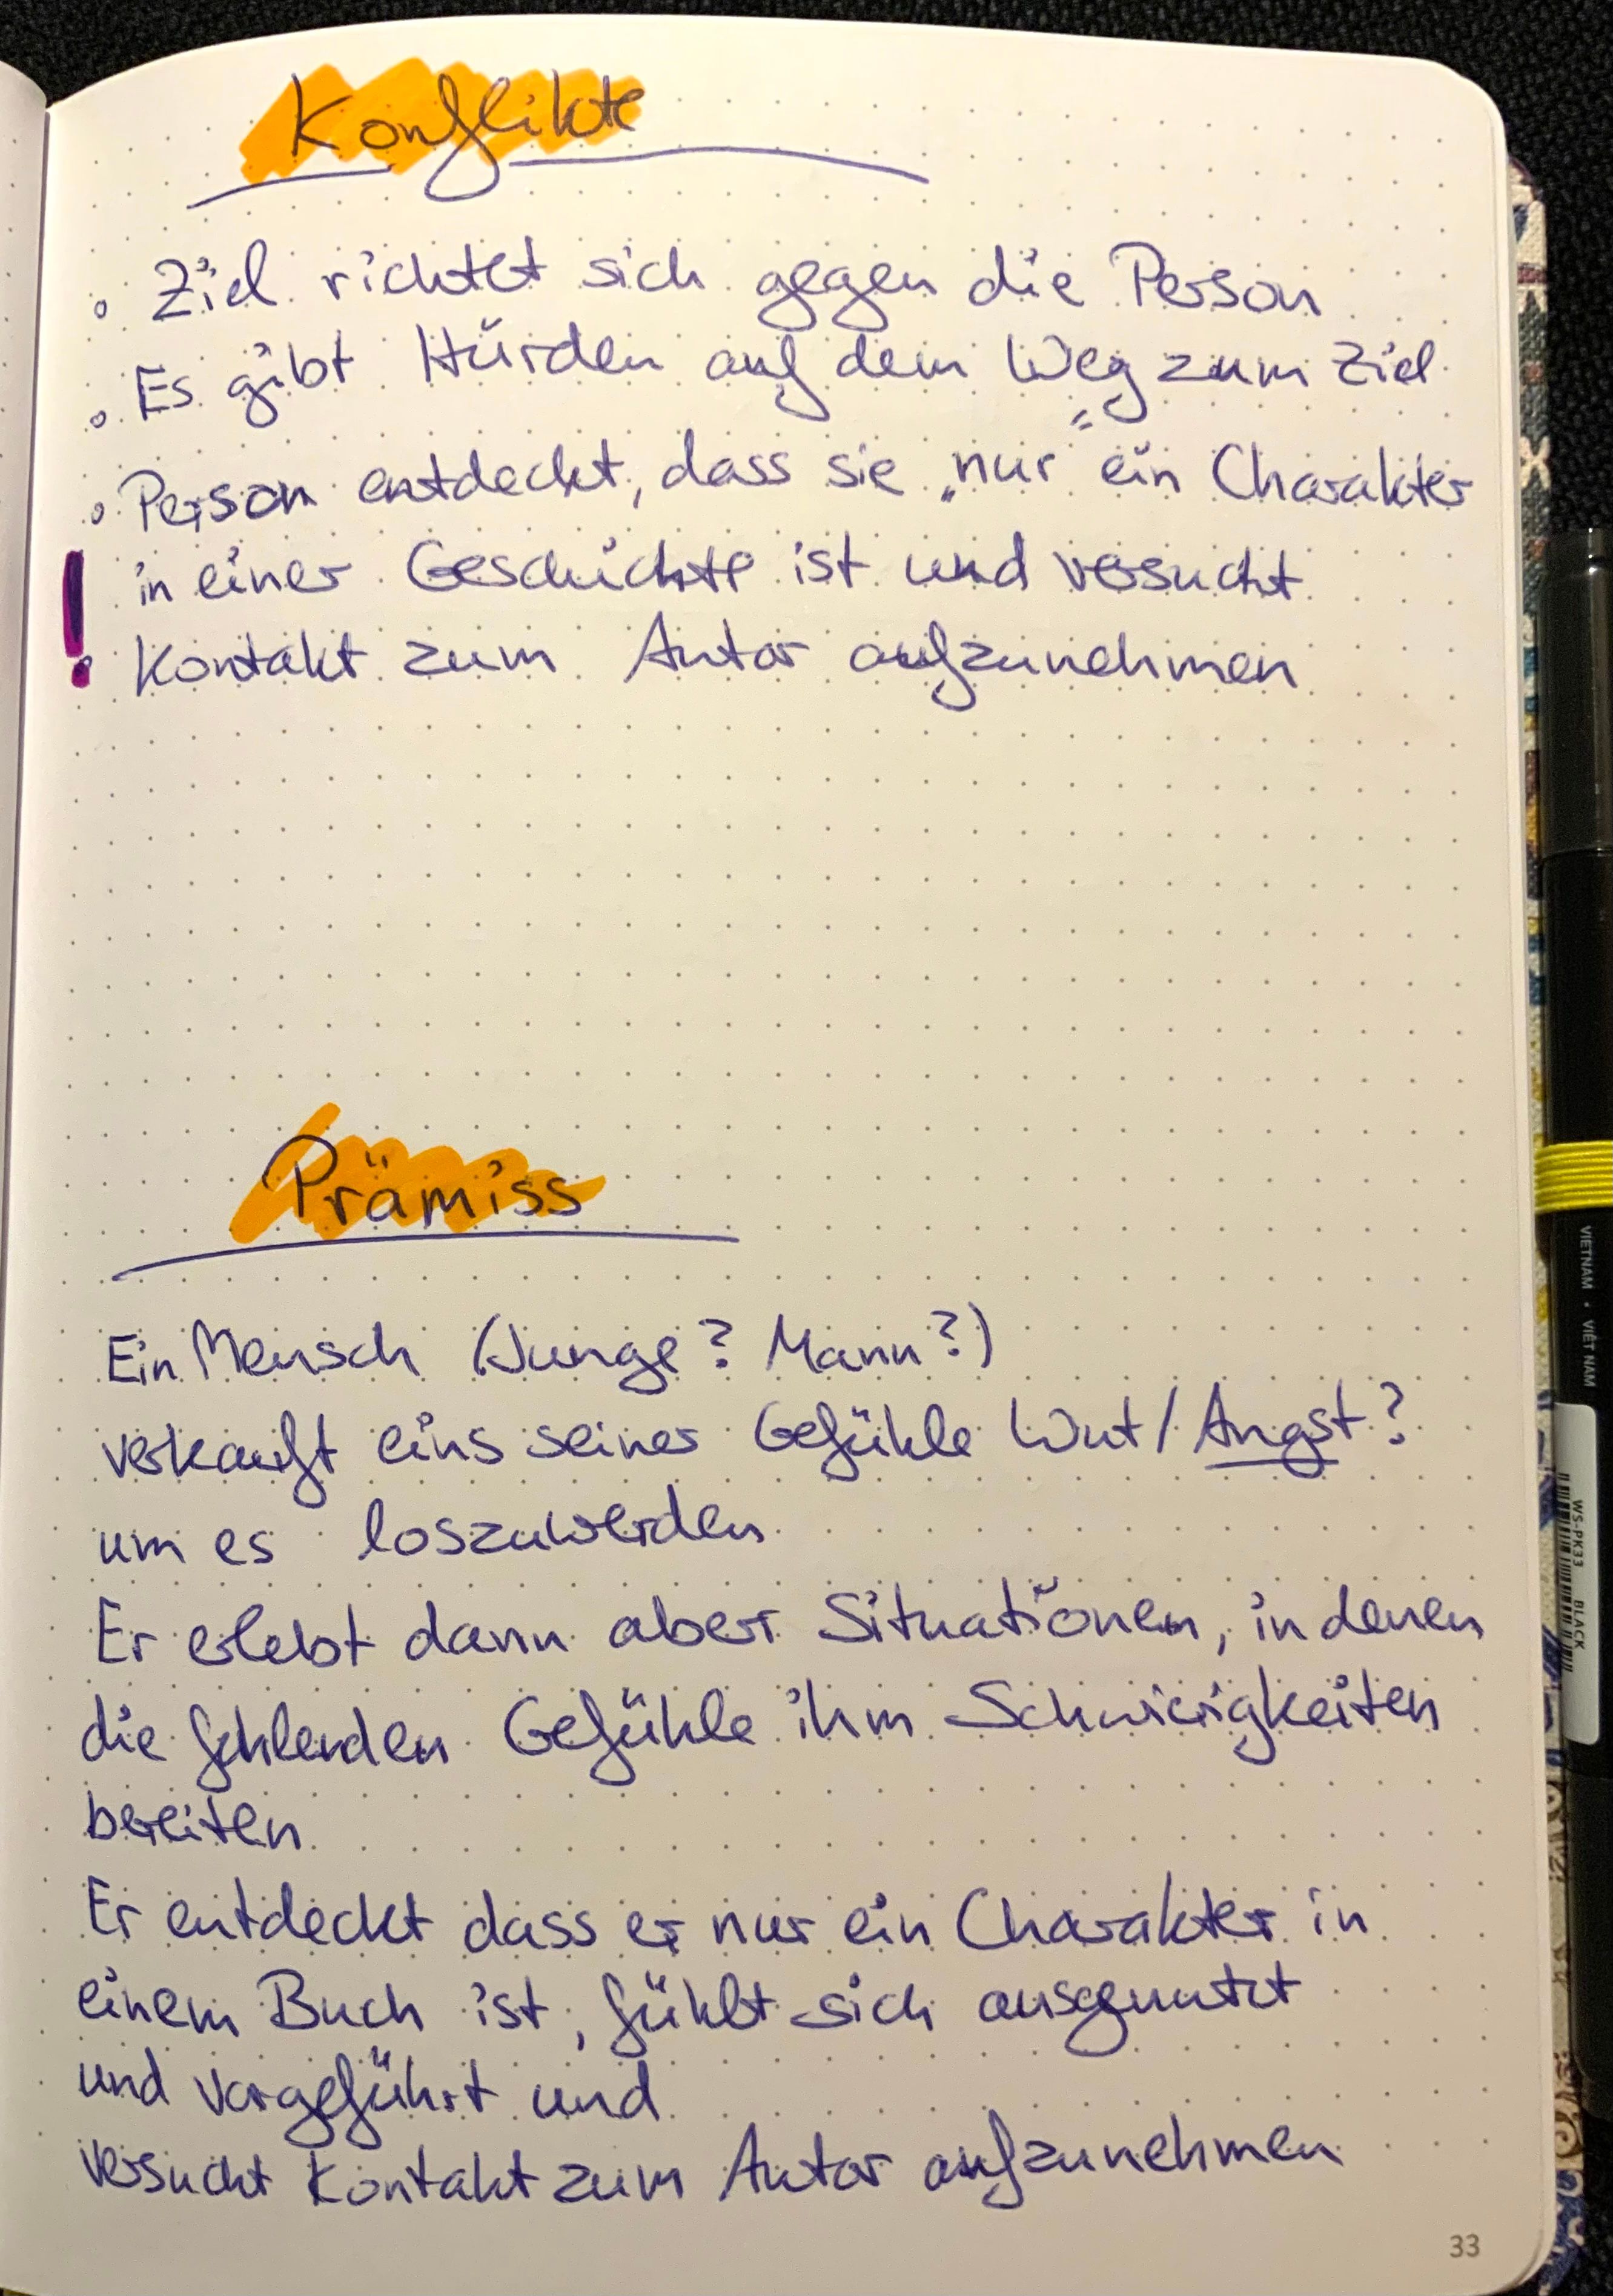 Konflikte
◦ Ziel richtet sich gegen die Person
◦ Es gibt Hürden auf dem Weg zum Ziel
◦ Person entdeckt, dass sie „nur“ ein Charakter
! in einer Geschichte ist und versucht
Kontakt zum Autor aufzunehmen
Prämiss
Ein Mensch (Junge? Mann?)
verkauft eins seiner Gefühle Wut/Angst?
um es loszuwerden
Er erlebt dann aber Situationen, in denen
die fehlenden Gefühle ihm Schwierigkeiten
bereiten
Er entdeckt dass er nur ein Charakter in
einem Buch ist, fühlt sich ausgenutzt
und vorgeführt und
versucht Kontakt zum Autor aufzunehmen
33
VIETNAM • VIỆT NAM
WS-PK33 BLACK